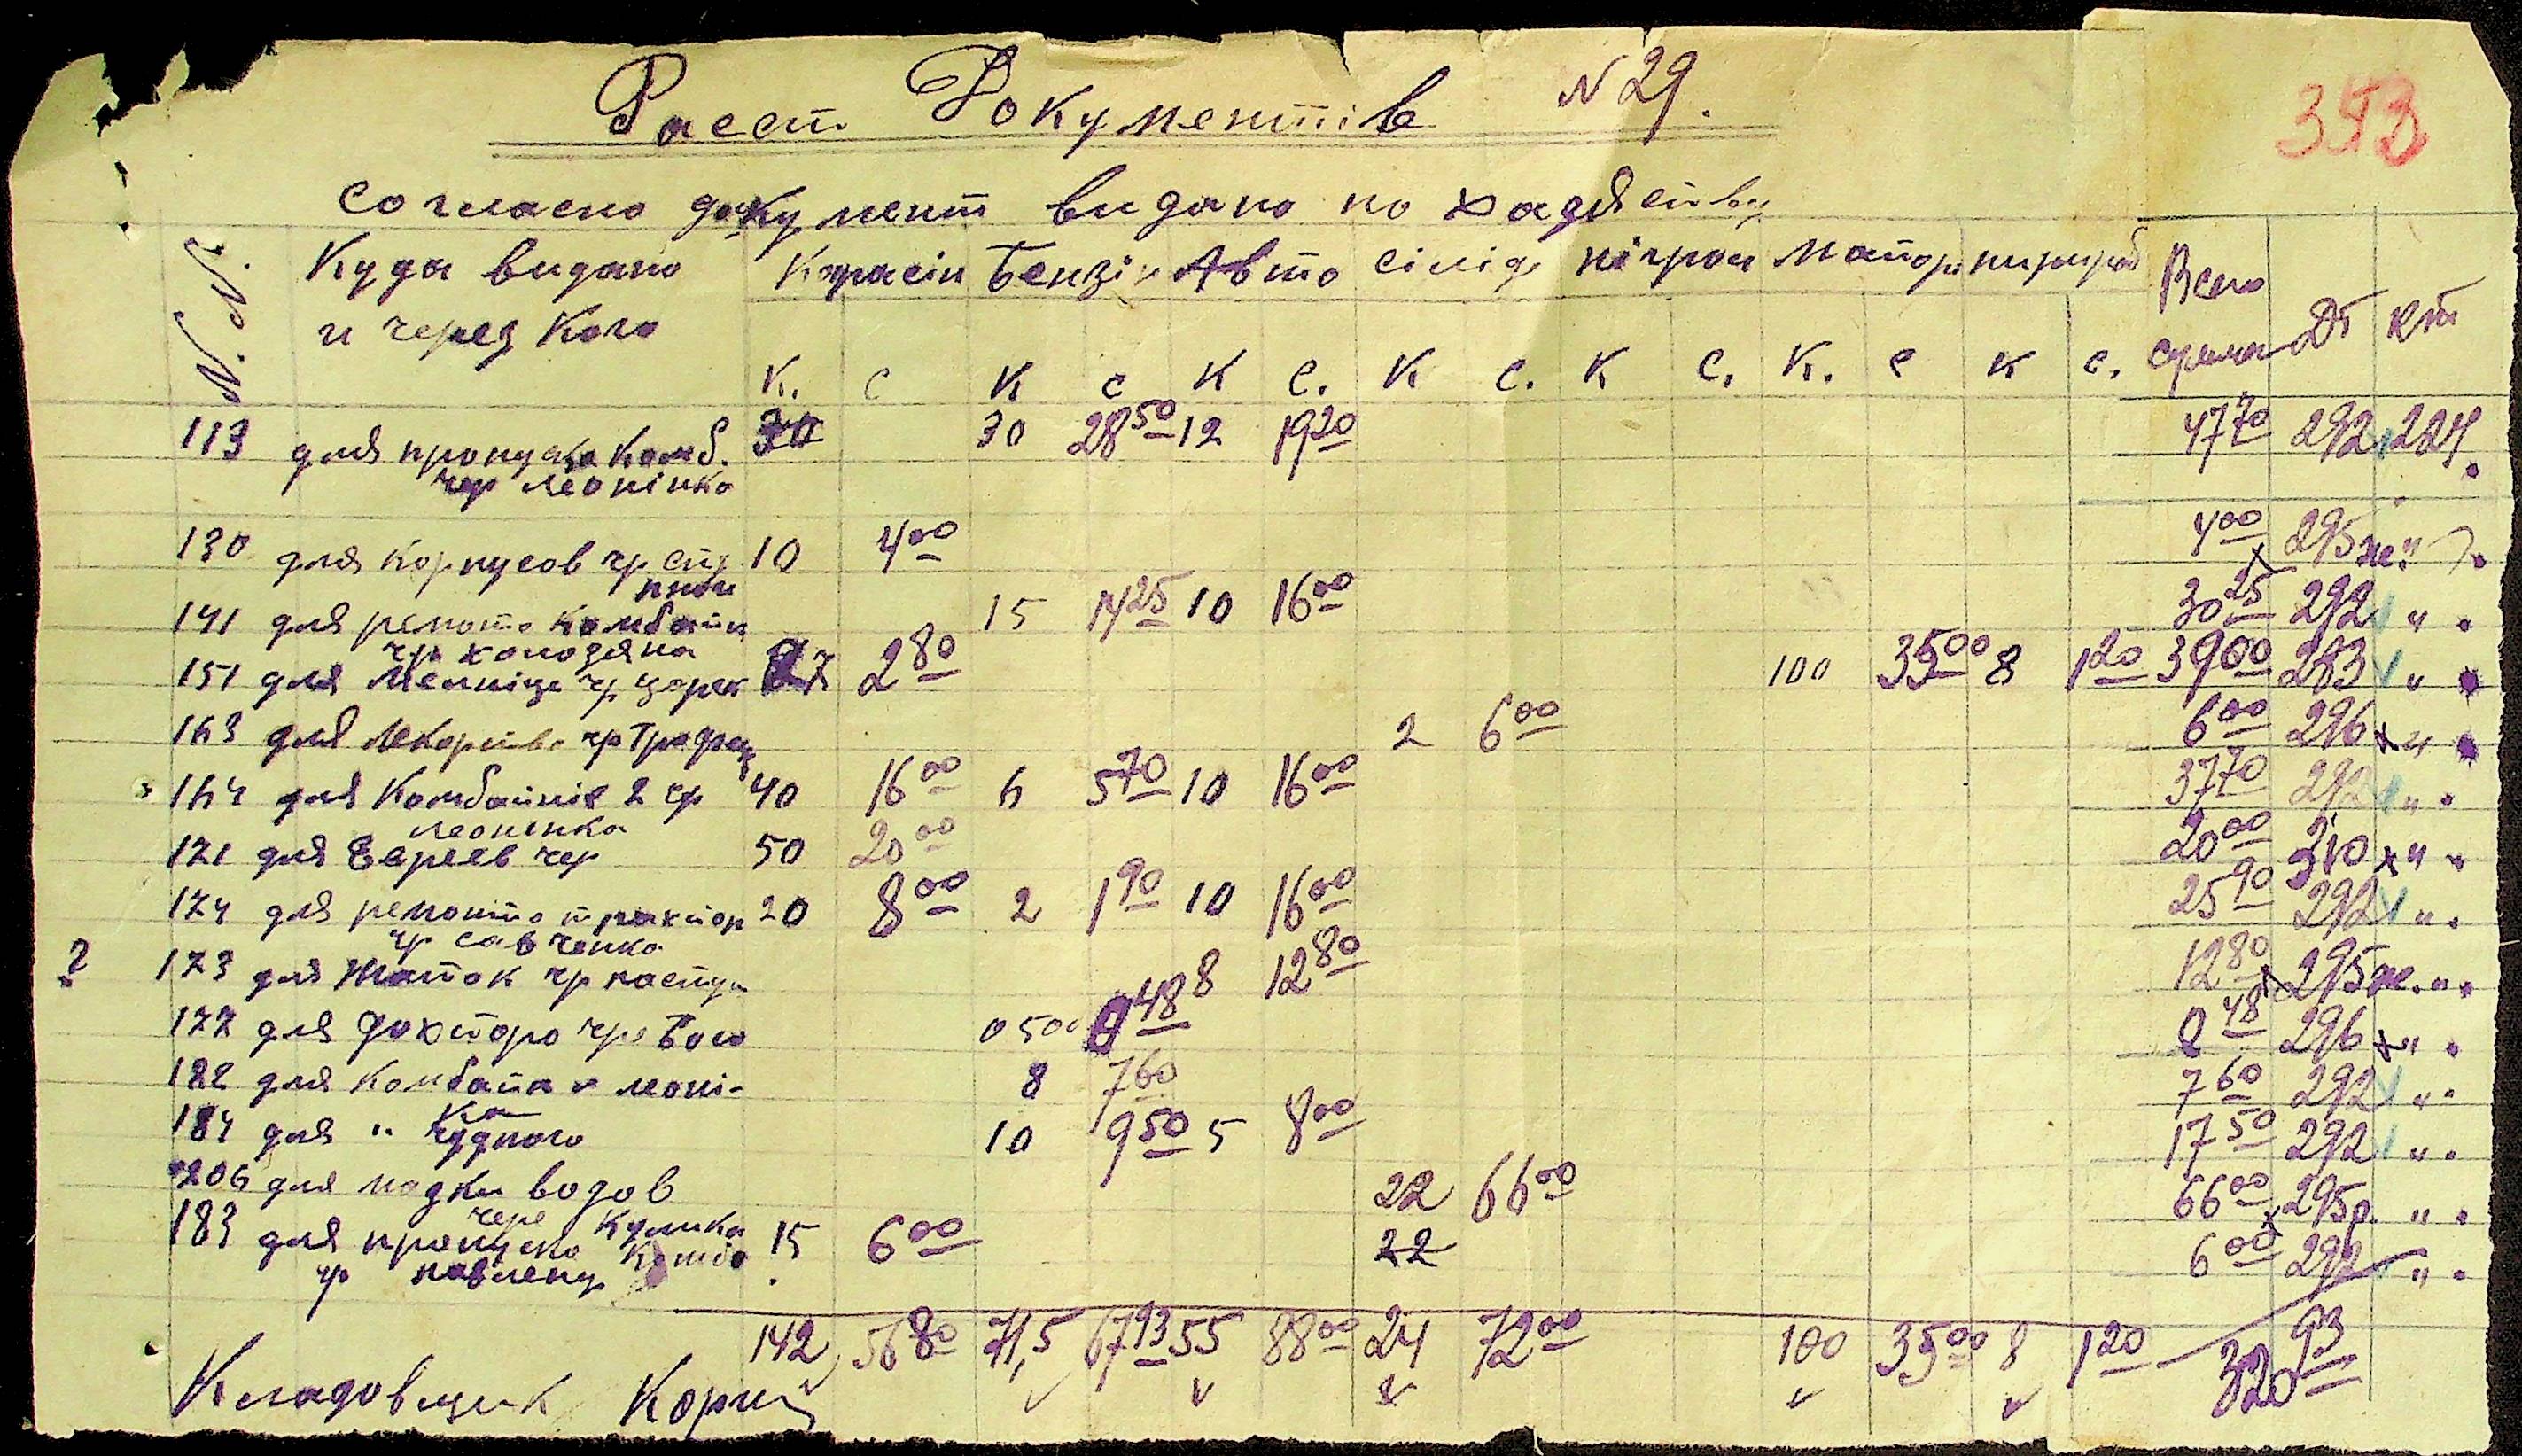 Раест Документів N 29.
353
согласно документ видано по хазяйству
N. N. Куда видано Карасін Бензін Авто сілід нігрол Матор Всего
и через Кого сумма Дт Кт
К. с К с К с. К с. К с. К. с К с.
113 для пропуска Комб. 30 30 28 50 12 19 20 47 70 292 224.
чер Леонінка
130 для Корпусов чр 10 4 00 4 00 295 ж. "
141 для ремонта Комбайн 15 14 25 10 16 00 30 25 292 "
чр
151 для Мелниці чр 7 2 80 100 35 00 8 1 20 39 00 283 "
163 для Лекарства чр 2 6 00 6 00 296 "
164 для Комбайнів 2 чр 40 16 00 6 5 70 10 16 00 37 70 292 "
Леонінка
171 для Евреев чер 50 20 00 20 00 310 "
174 для ремонта трактор 20 8 00 2 1 90 10 16 00 25 90 292 "
чр Савченка
? 173 для Жаток чр 8 12 80 12 80 295 ж. "
177 для Доктора чр 0 500 0 48 0 48 296 "
182 для Комбайна Леоні- 8 7 60 7 60 292 "
ка
184 для " Чудного 10 9 50 5 8 00 17 50 292 "
206 для водов 22 66 00 66 00 295 р. "
чере Кулика
183 для пропуска Комба 15 6 00 22 6 00 292 "
чр
142 56 80 71,5 67 93 55 88 00 24 72 00 100 35 00 8 1 20 320 93
Кладовщик